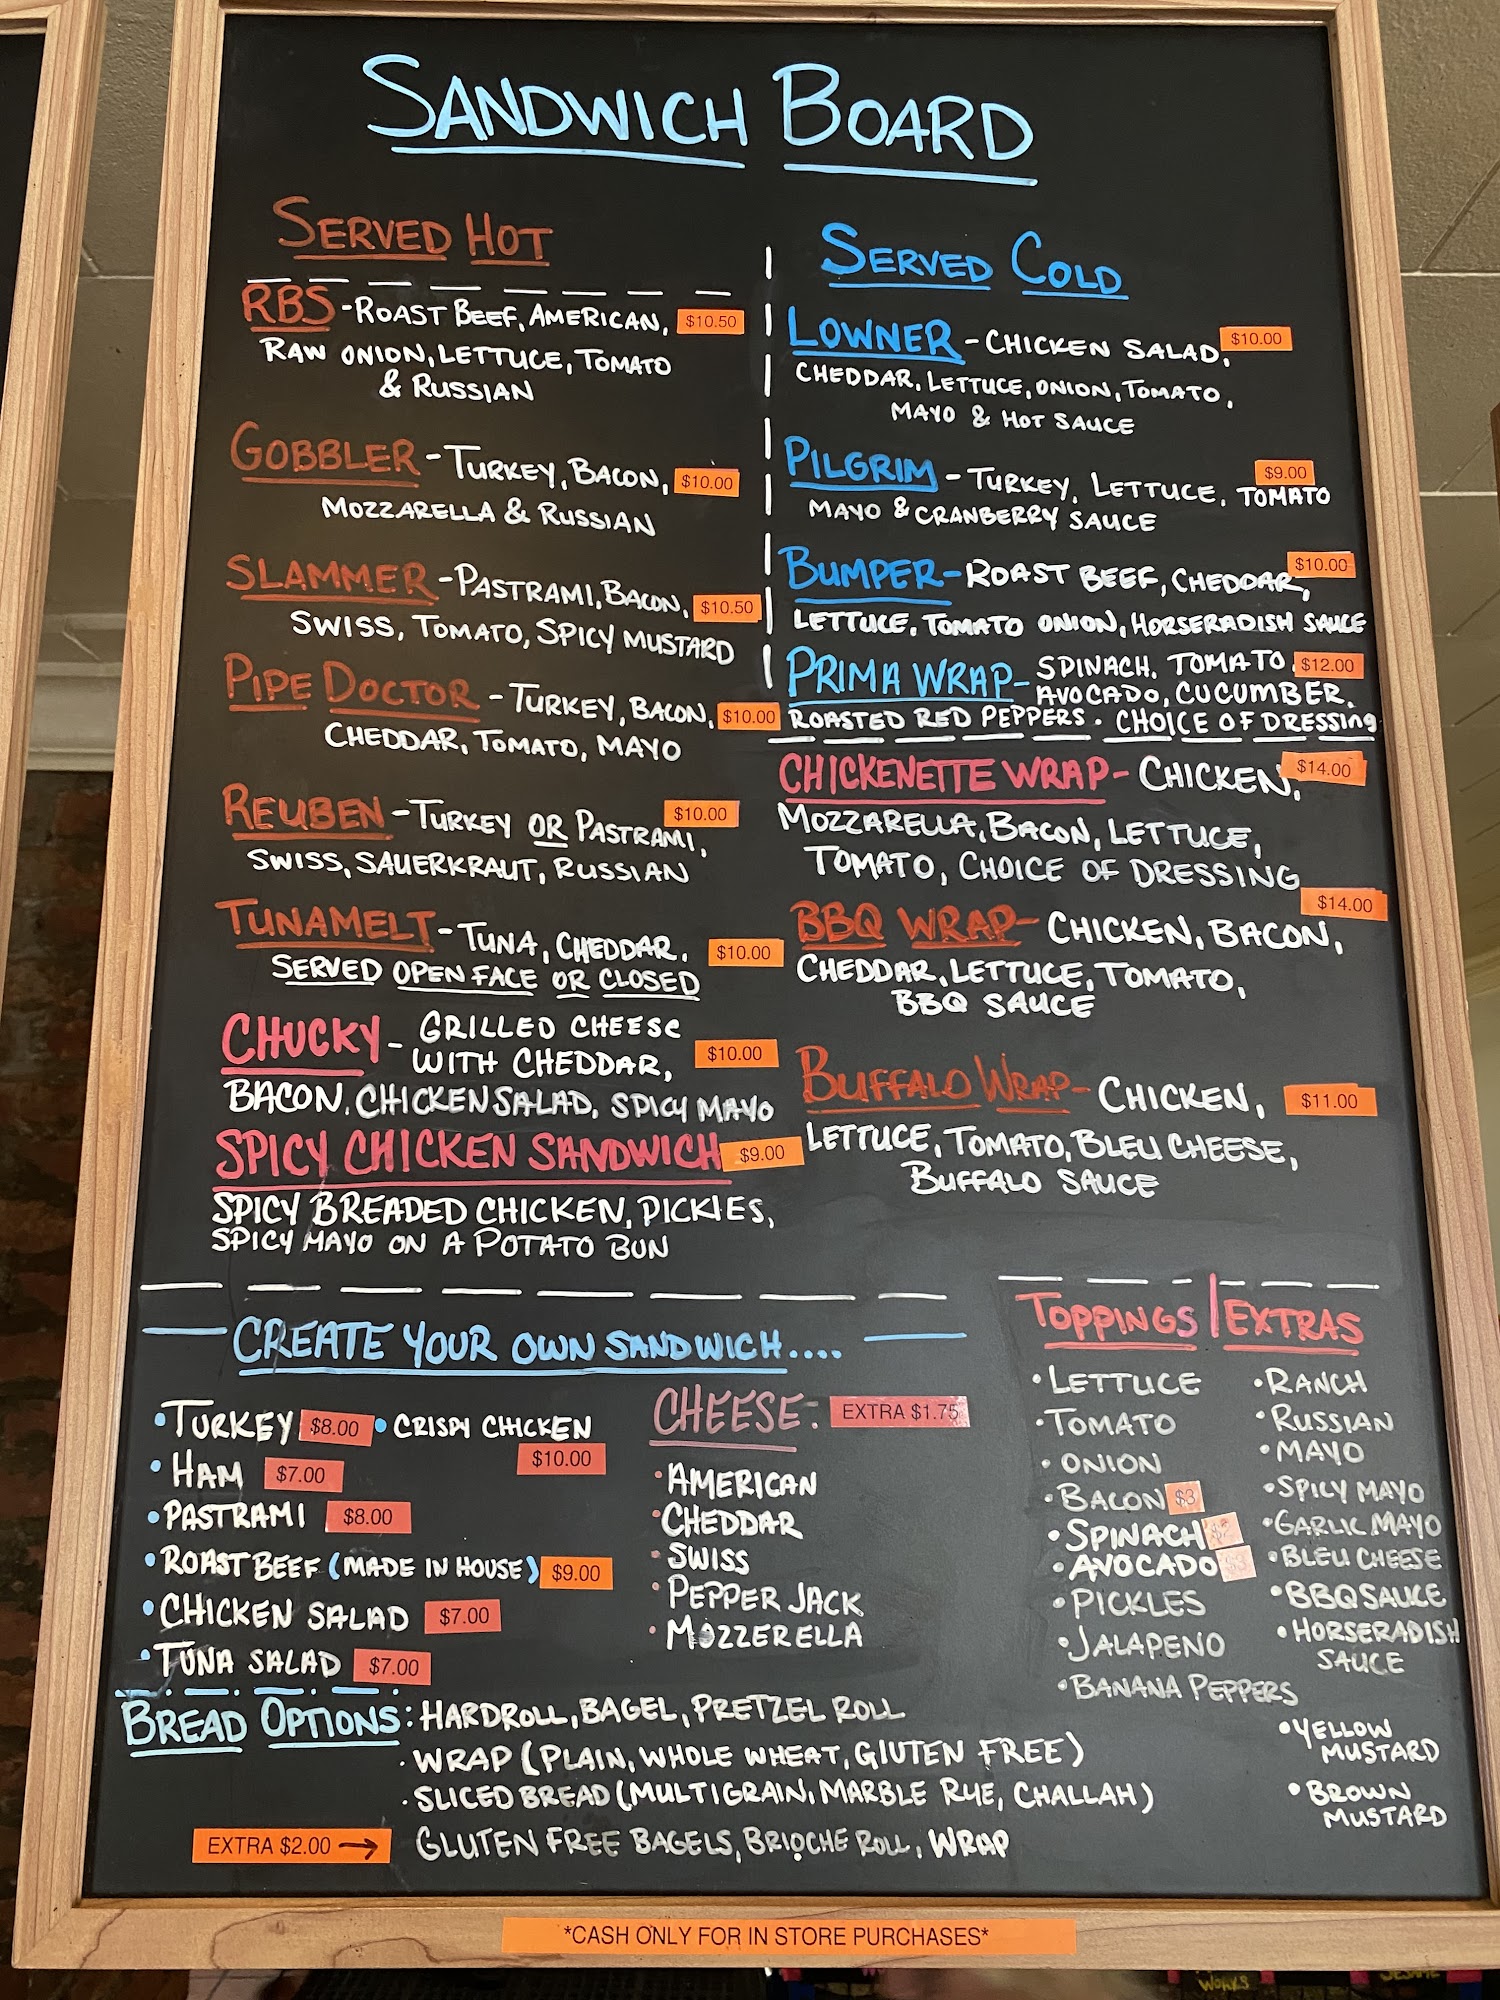 SANDWICH BOARD
SERVED HOT
RBS - ROAST BEEF, AMERICAN, $10.50
RAW ONION, LETTUCE, TOMATO
& RUSSIAN
GOBBLER - TURKEY, BACON, $10.00
MOZZARELLA & RUSSIAN
SLAMMER - PASTRAMI, BACON, $10.50
SWISS, TOMATO, SPICY MUSTARD
PIPE DOCTOR - TURKEY, BACON, $10.00
CHEDDAR, TOMATO, MAYO
REUBEN - TURKEY OR PASTRAMI, $10.00
SWISS, SAUERKRAUT, RUSSIAN
TUNAMELT - TUNA, CHEDDAR. $10.00
SERVED OPEN FACE OR CLOSED
CHUCKY - GRILLED CHEESE
WITH CHEDDAR, $10.00
BACON, CHICKEN SALAD, SPICY MAYO
SPICY CHICKEN SANDWICH $9.00
SPICY BREADED CHICKEN, PICKLES,
SPICY MAYO ON A POTATO BUN
SERVED COLD
LOWNER - CHICKEN SALAD, $10.00
CHEDDAR, LETTUCE, ONION, TOMATO,
MAYO & HOT SAUCE
PILGRIM - TURKEY, LETTUCE, TOMATO $9.00
MAYO & CRANBERRY SAUCE
BUMPER - ROAST BEEF, CHEDDAR, $10.00
LETTUCE, TOMATO ONION, HORSERADISH SAUCE
PRIMA WRAP - SPINACH, TOMATO, $12.00
AVOCADO, CUCUMBER,
ROASTED RED PEPPERS. CHOICE OF DRESSING
CHICKENETTE WRAP - CHICKEN, $14.00
MOZZARELLA, BACON, LETTUCE,
TOMATO, CHOICE OF DRESSING
BBQ WRAP - CHICKEN, BACON, $14.00
CHEDDAR, LETTUCE, TOMATO,
BBQ SAUCE
BUFFALO WRAP - CHICKEN, $11.00
LETTUCE, TOMATO, BLEU CHEESE,
BUFFALO SAUCE
CREATE YOUR OWN SANDWICH....
• TURKEY $8.00 • CRISPY CHICKEN
$10.00
• HAM $7.00
• PASTRAMI $8.00
• ROAST BEEF (MADE IN HOUSE) $9.00
• CHICKEN SALAD $7.00
• TUNA SALAD $7.00
CHEESE: EXTRA $1.75
• AMERICAN
• CHEDDAR
• SWISS
• PEPPER JACK
• MOZZERELLA
TOPPINGS | EXTRAS
• LETTUCE
• TOMATO
• ONION
• BACON $3
• SPINACH
• AVOCADO $3
• PICKLES
• JALAPENO
• BANANA PEPPERS
• RANCH
• RUSSIAN
• MAYO
• SPICY MAYO
• GARLIC MAYO
• BLEU CHEESE
• BBQ SAUCE
• HORSERADISH
SAUCE
• YELLOW
MUSTARD
• BROWN
MUSTARD
BREAD OPTIONS: HARDROLL, BAGEL, PRETZEL ROLL
• WRAP (PLAIN, WHOLE WHEAT, GLUTEN FREE)
• SLICED BREAD (MULTIGRAIN, MARBLE RYE, CHALLAH)
EXTRA $2.00 → GLUTEN FREE BAGELS, BRIOCHE ROLL, WRAP
*CASH ONLY FOR IN STORE PURCHASES*
WORKS